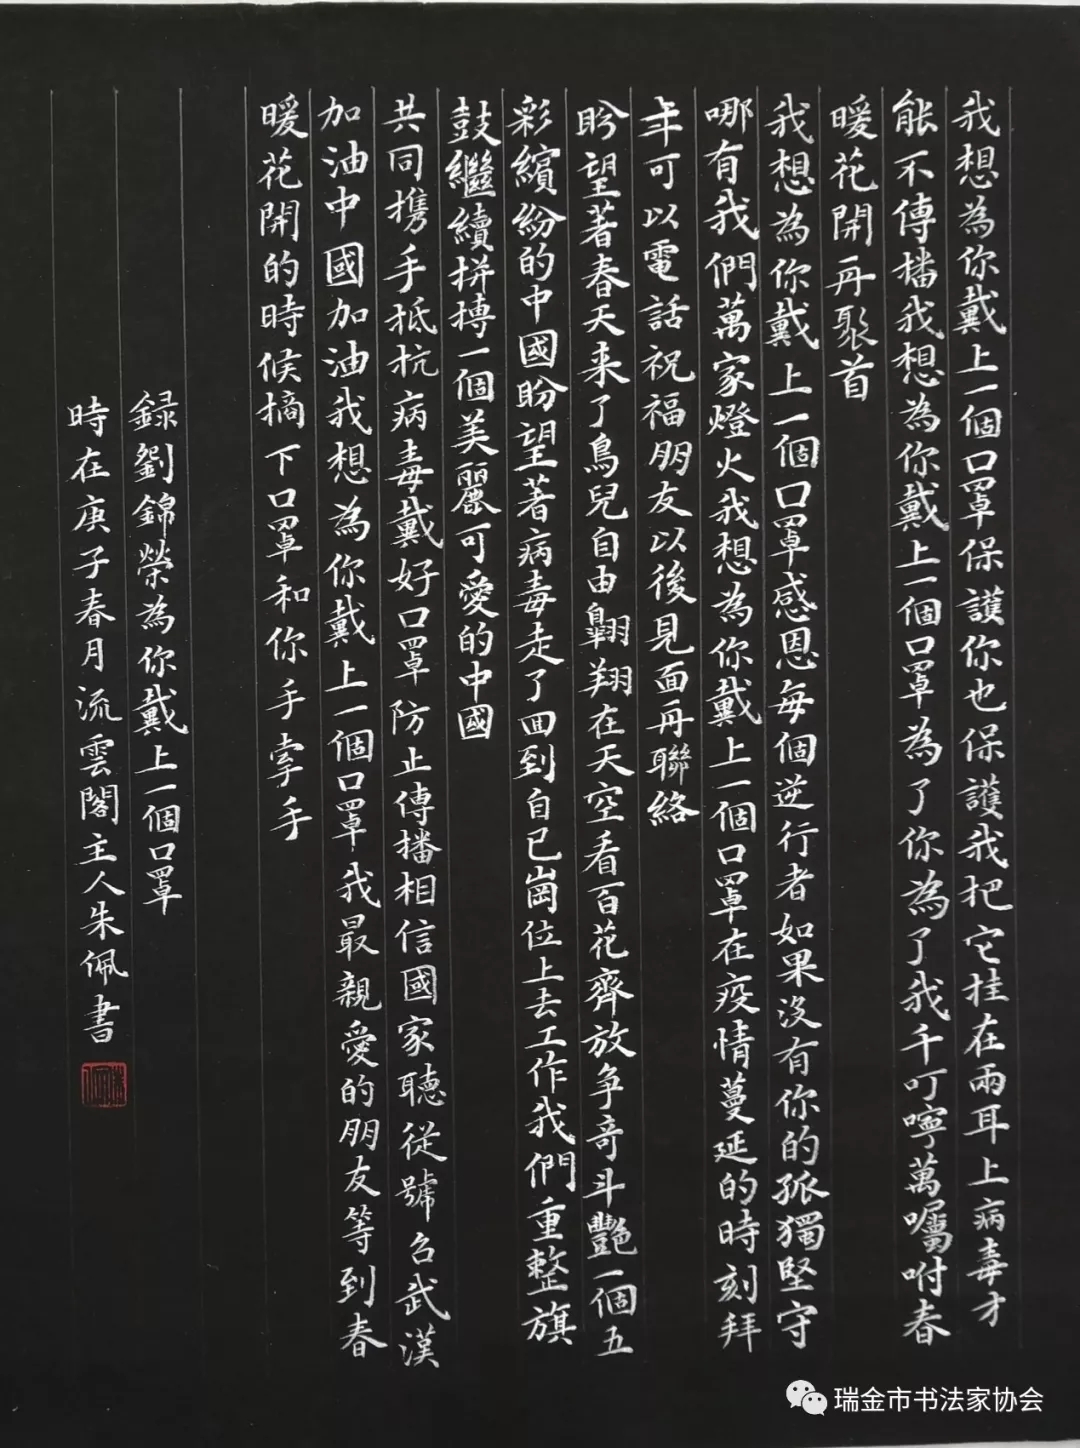 我想為你戴上一個口罩保護你也保護我把它挂在兩耳上病毒才
能不傳播我想為你戴上一個口罩為了你為了我千叮嚀萬囑咐春
暖花開再聚首
我想為你戴上一個口罩感恩每個逆行者如果沒有你的孤獨堅守
哪有我們萬家燈火我想為你戴上一個口罩在疫情蔓延的時刻拜
年可以電話祝福朋友以後見面再聯絡
盼望著春天来了鳥兒自由翱翔在天空看百花齊放争奇斗艷一個五
彩繽紛的中國盼望著病毒走了回到自己崗位上去工作我們重整旗
鼓繼續拼搏一個美麗可愛的中國
共同携手抵抗病毒戴好口罩防止傳播相信國家聽從號召武漢
加油中國加油我想為你戴上一個口罩我最親愛的朋友等到春
暖花開的時候摘下口罩和你手牽手
録劉錦榮為你戴上一個口罩
時在庚子春月流雲閣主人朱佩書
瑞金市书法家协会